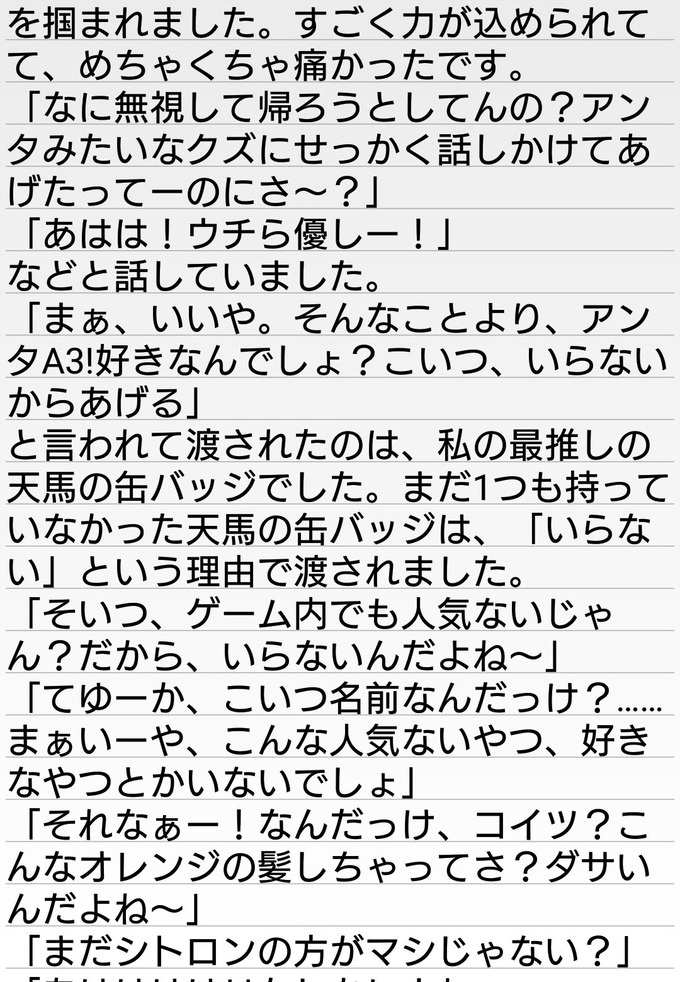 を掴まれました。すごく力が込められて
て、めちゃくちゃ痛かったです。
「なに無視して帰ろうとしてんの？アン
タみたいなクズにせっかく話しかけてあ
げたってーのにさ〜？」
「あはは！ウチら優しー！」
などと話していました。
「まぁ、いいや。そんなことより、アン
タA3!好きなんでしょ？こいつ、いらない
からあげる」
と言われて渡されたのは、私の最推しの
天馬の缶バッジでした。まだ1つも持って
いなかった天馬の缶バッジは、「いらな
い」という理由で渡されました。
「そいつ、ゲーム内でも人気ないじゃ
ん？だから、いらないんだよね〜」
「てゆーか、こいつ名前なんだっけ？……
まぁいーや、こんな人気ないやつ、好き
なやつとかいないでしょ」
「それなぁー！なんだっけ、コイツ？こ
んなオレンジの髪しちゃってさ？ダサい
んだよね〜」
「まだシトロンの方がマシじゃない？」